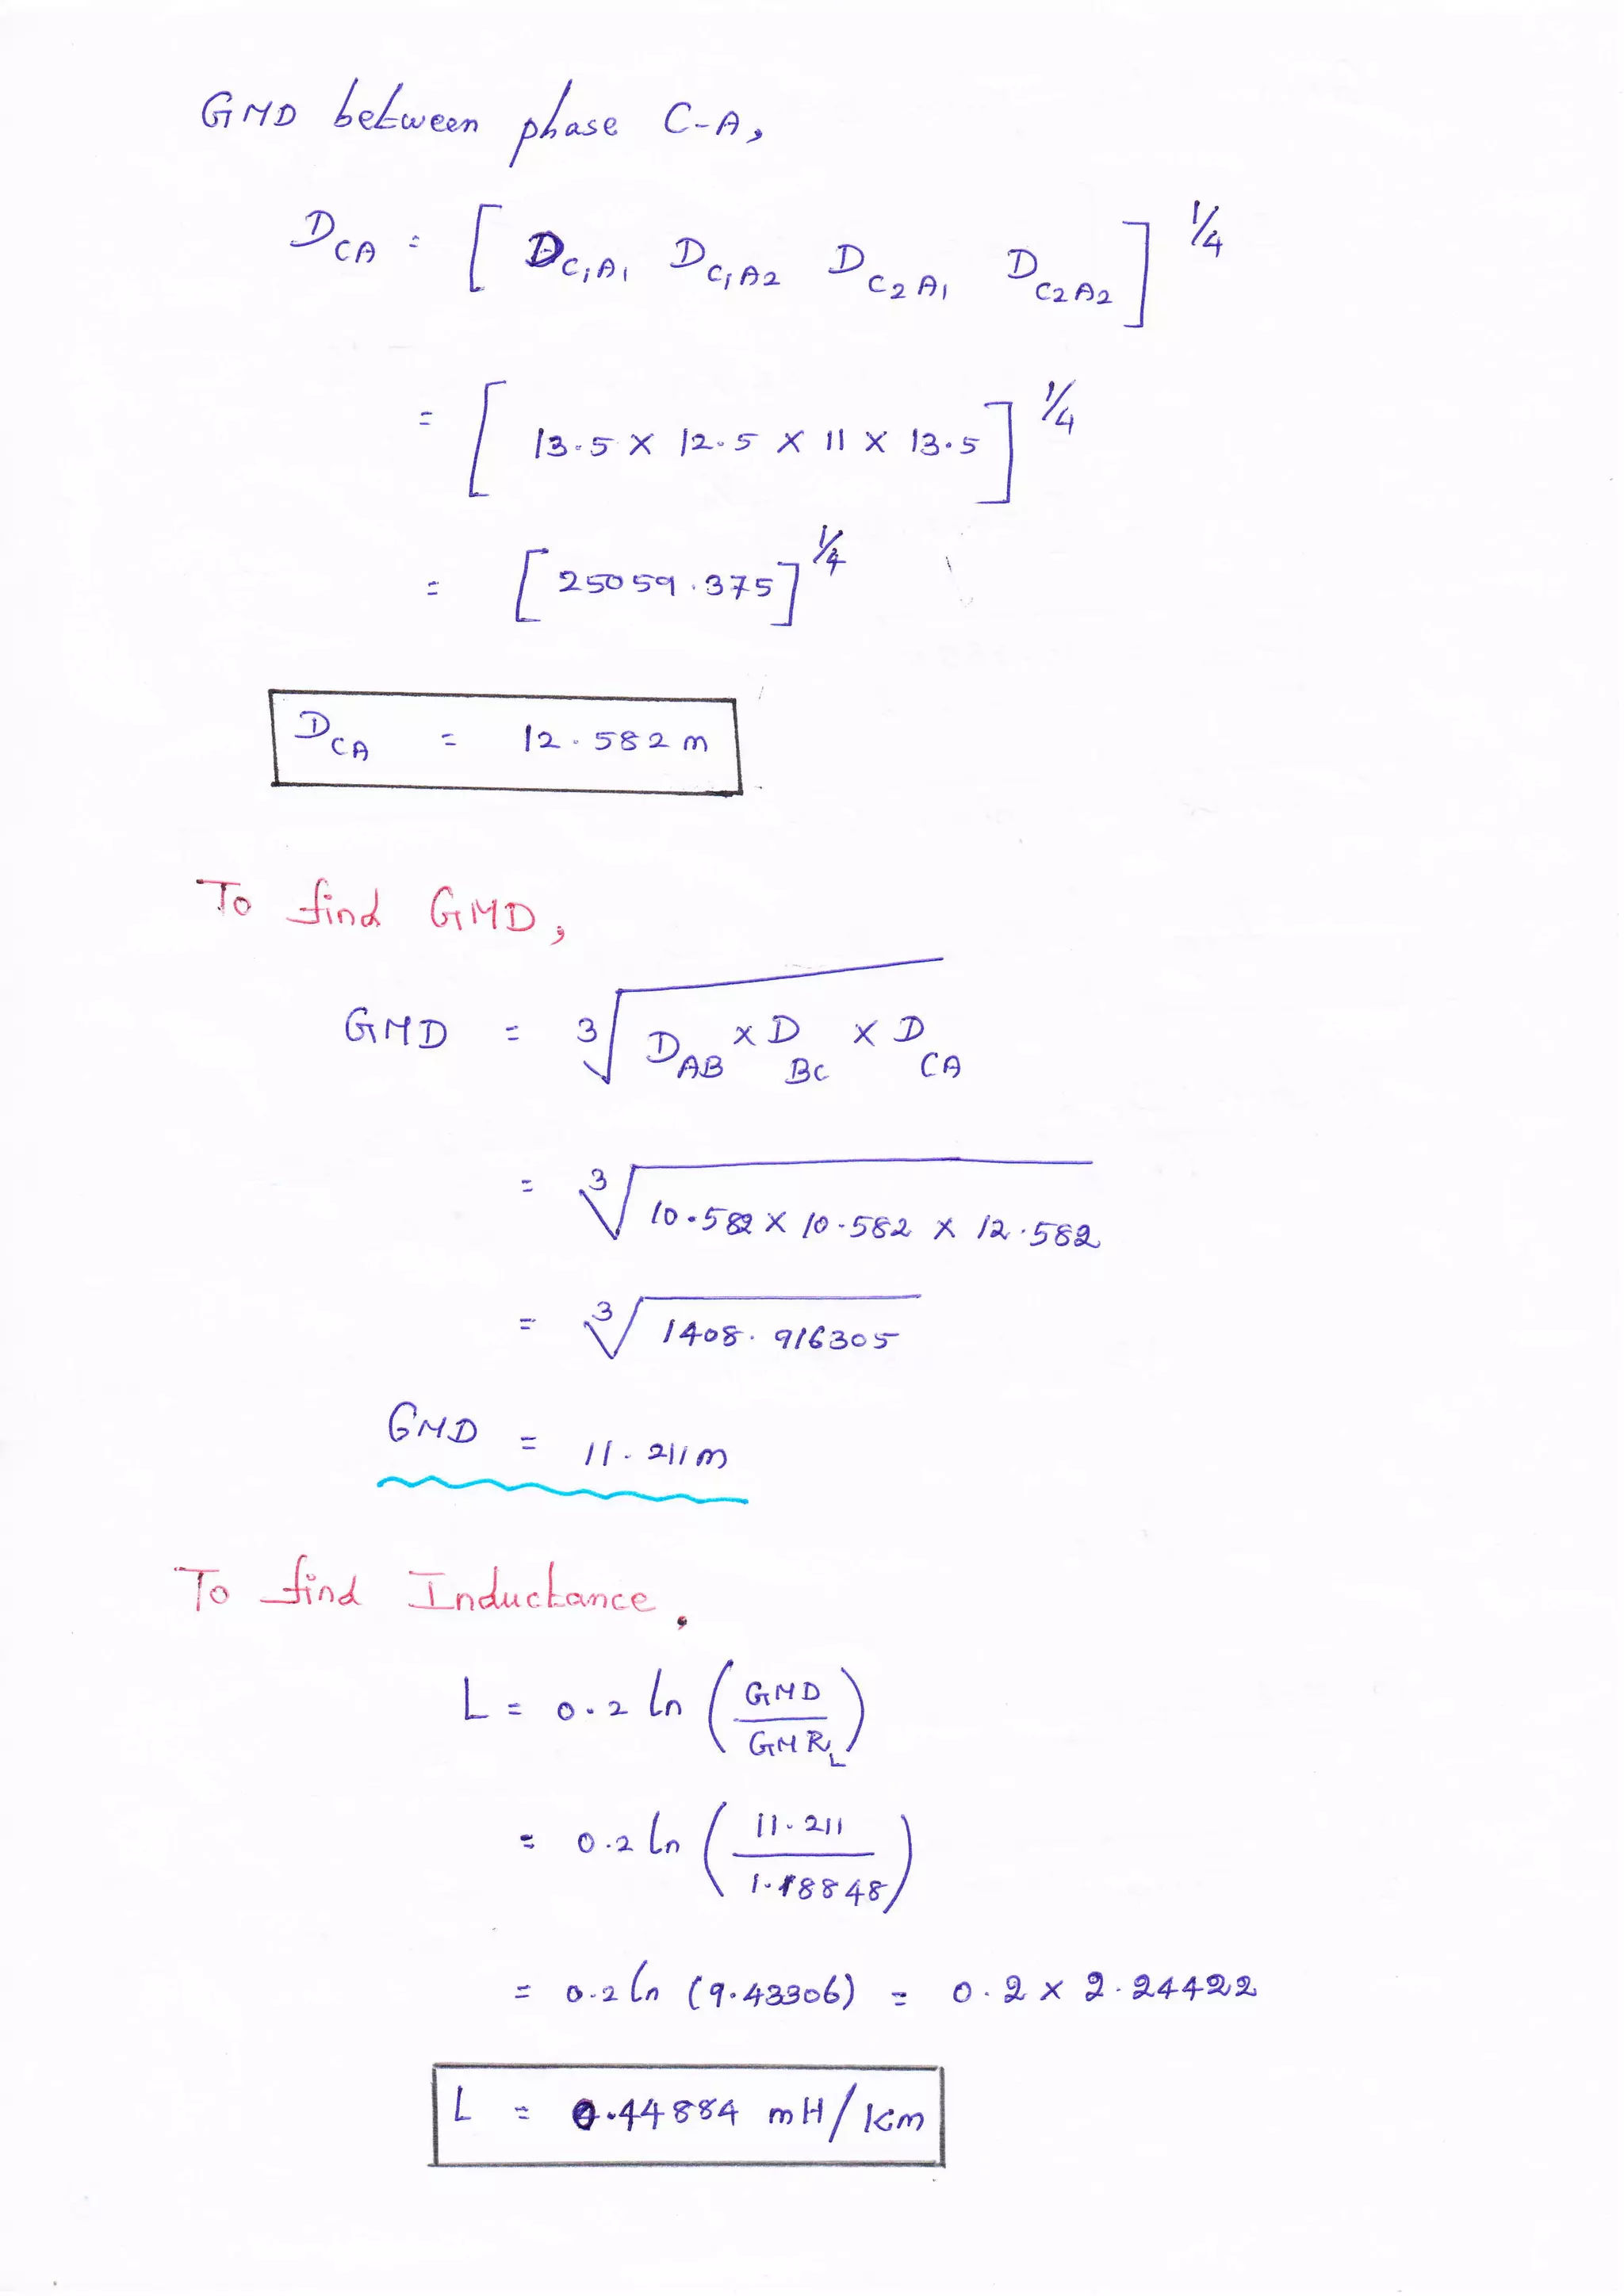 GMD between phase C-A,
D_CA = [ D_C1A1 D_C1A2 D_C2A1 D_C2A2 ]^1/4
= [ 13.5 × 12.5 × 11 × 13.5 ]^1/4
= [ 25059.375 ]^1/4
D_CA = 12.582 m
To find GMD,
GMD = ∛ D_AB × D_BC × D_CA
= ∛ 10.582 × 10.582 × 12.582
= ∛ 1408.916305
GMD = 11.211 m
To find Inductance,
L = 0.2 ln ( GMD / GMR_L )
= 0.2 ln ( 11.211 / 1.18848 )
= 0.2 ln (9.43306) = 0.2 × 2.24422
L = 0.44884 mH/km